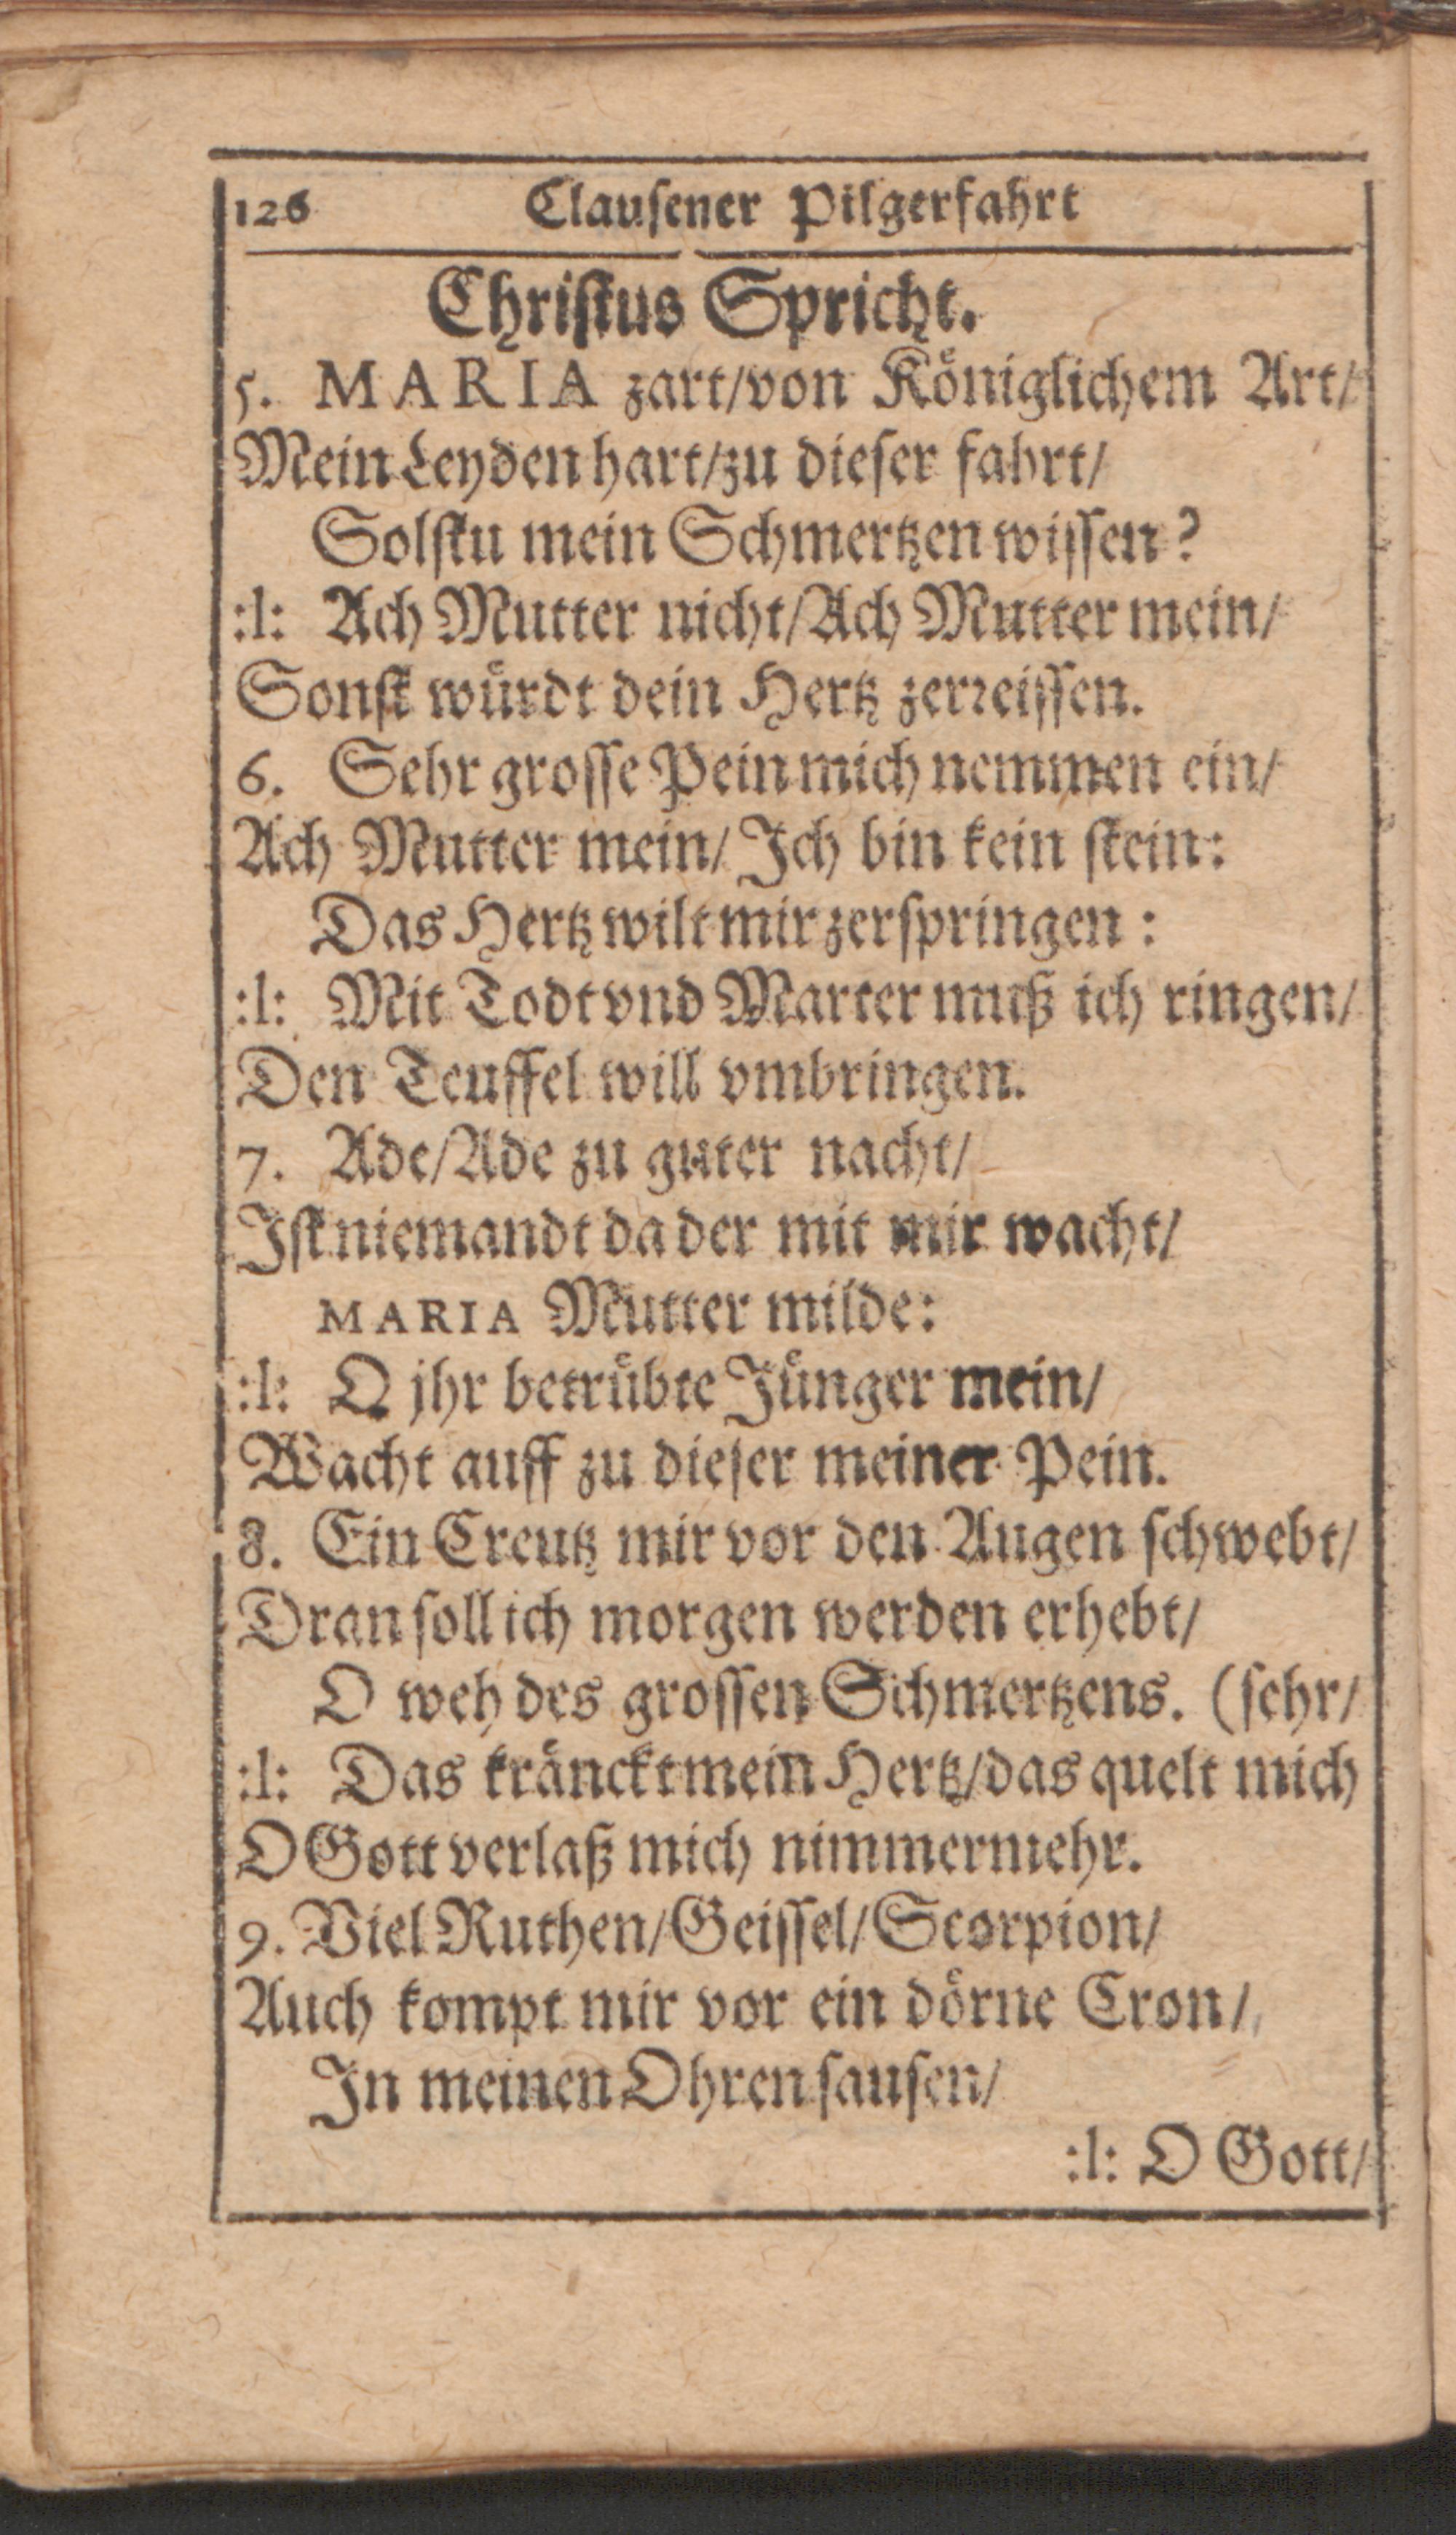 126 Clauſener Pilgerfahrt
Chriſtus Spricht.
5. MARIA zart/von Königlichem Art/
Mein Leyden hart/zu dieſer fahrt/
Solſtu mein Schmertzen wiſſen?
:l: Ach Mutter nicht/Ach Mutter mein/
Sonſt würdt dein Hertz zerꝛeiſſen.
6. Sehr groſſe Pein mich nemmen ein/
Ach Mutter mein/ Ich bin kein ſtein:
Das Hertz wilt mir zerſpringen:
:l: Mit Todt vnd Marter muß ich ringen/
Den Teuffel will vmbringen.
7. Ade/Ade zu guter nacht/
Iſt niemandt da der mit mir wacht/
MARIA Mutter milde:
:l: O jhr betrübte Jünger mein/
Wacht auff zu dieſer meiner Pein.
8. Ein Creutz mir vor den Augen ſchwebt/
Dran ſoll ich morgen werden erhebt/
O weh des groſſen Schmertzens. (ſehr/
:l: Das kränckt mein Hertz/das quelt mich
O Gott verlaß mich nimmermehr.
9. Viel Ruthen/Geiſſel/Scorpion/
Auch kompt mir vor ein dörne Cron/
In meinen Ohren ſauſen/
:l: O Gott/